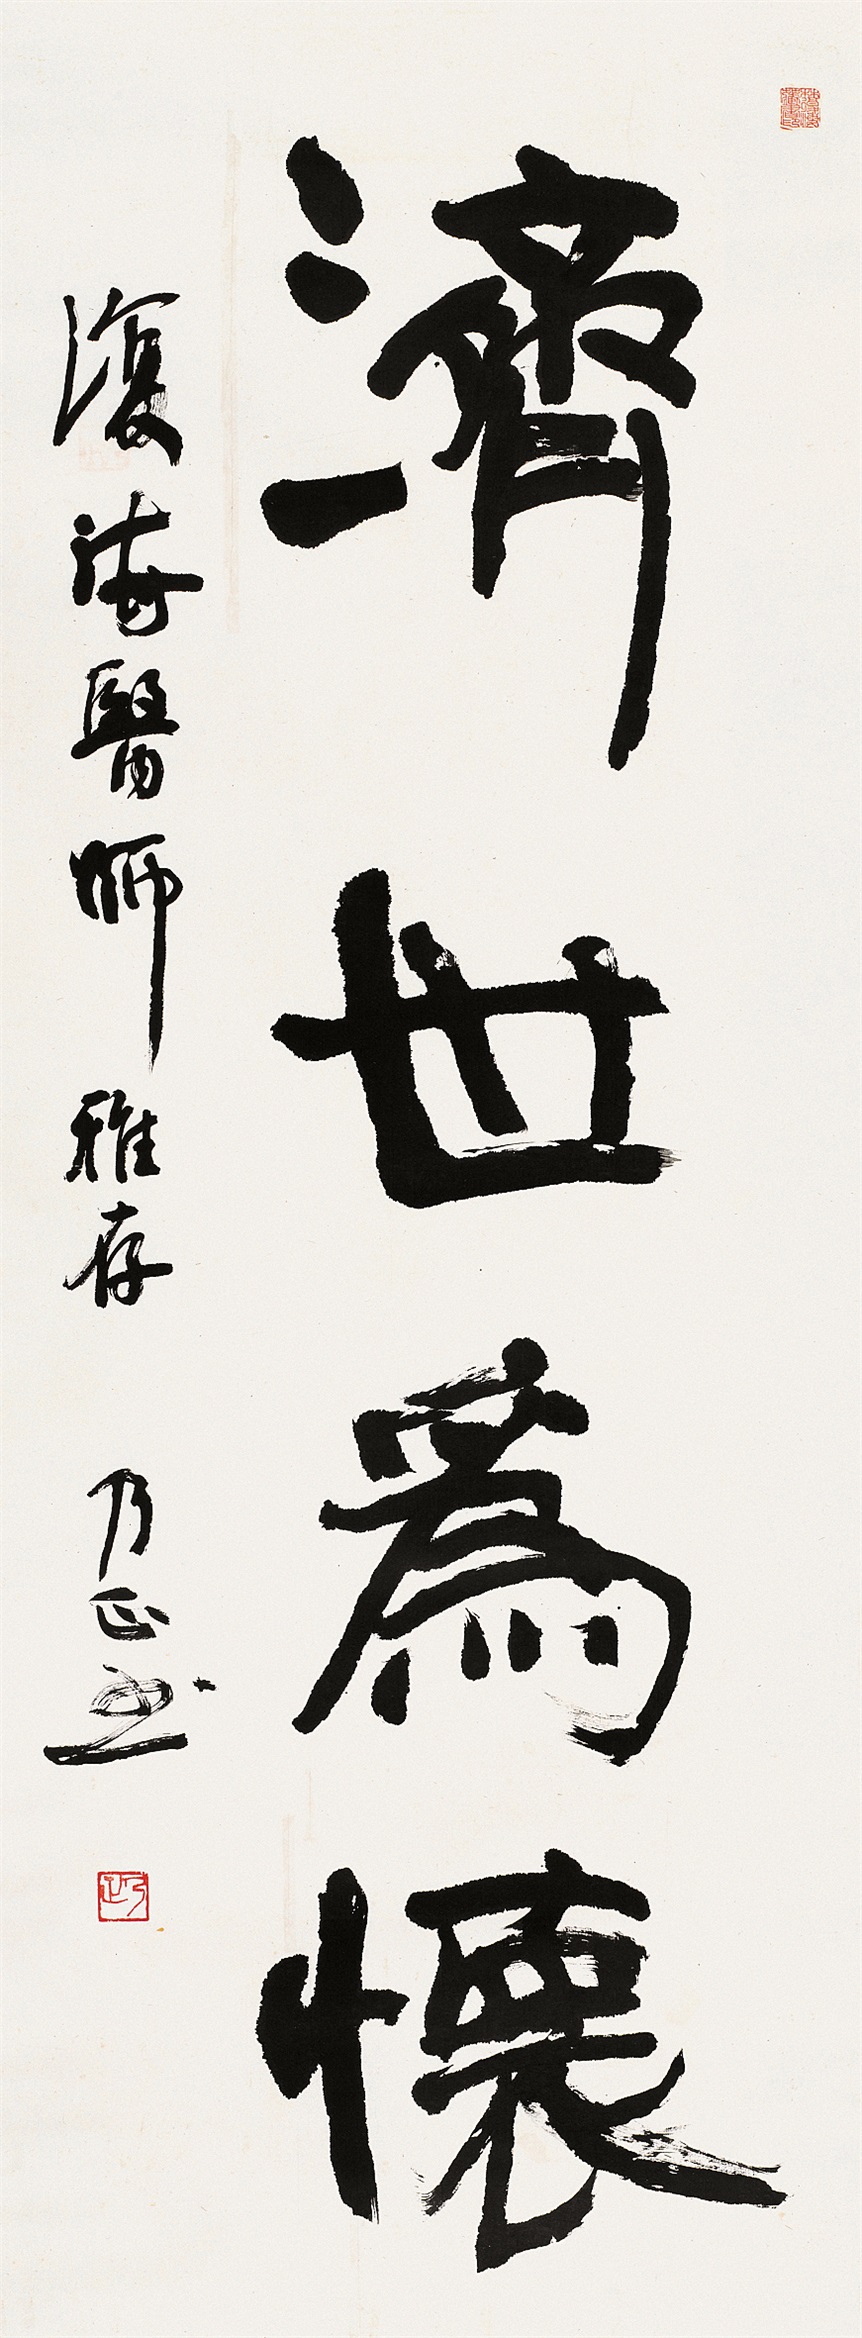 濟世爲懷
復海醫師雅存 乃正書